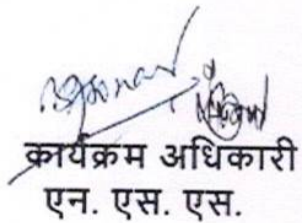 कार्यक्रम अधिकारी
एन. एस. एस.